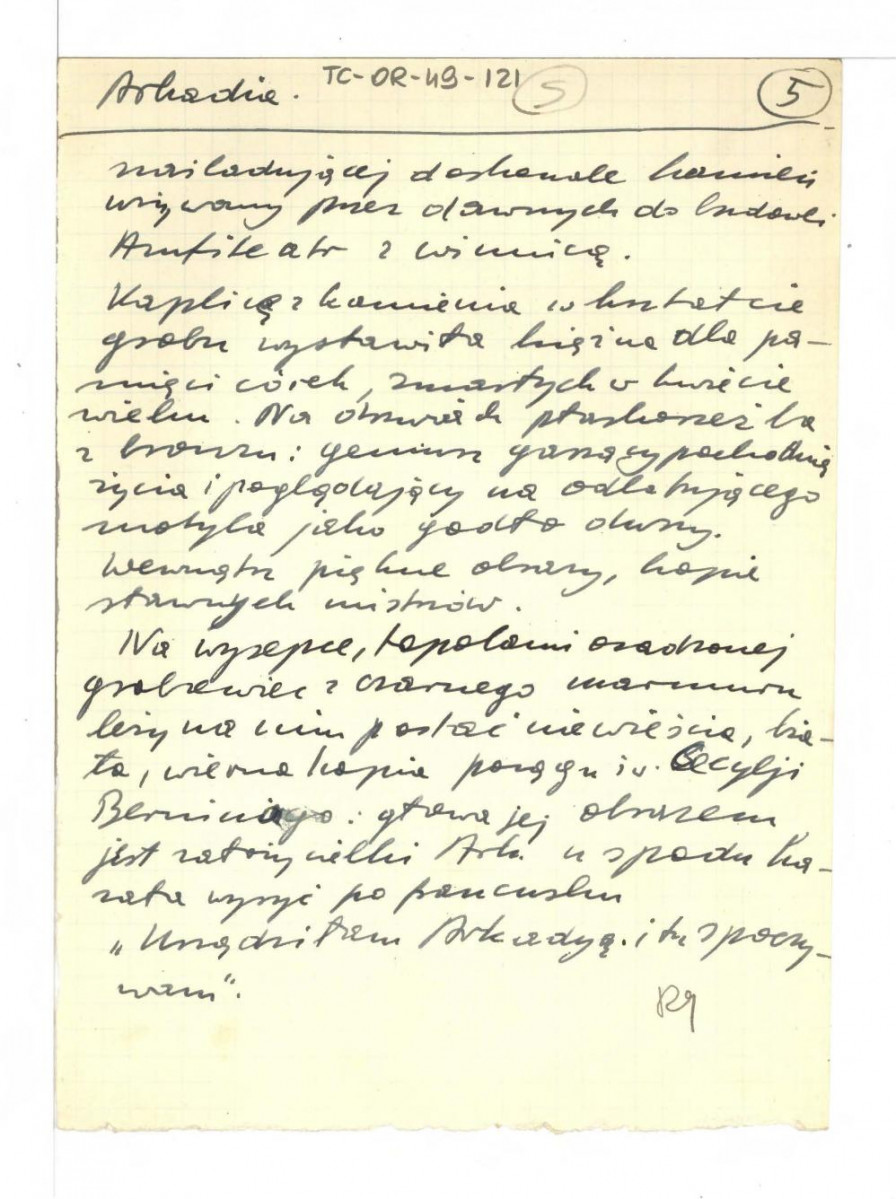 Arkadia. TC-OR-49-121 5 5
naśladującej doskonale kamień
używany przez dawnych do budowli
Amfiteatr z winnicą.
Kaplicę z kamienia w kształcie
grobu wystawiła księżna dla pa-
mięci córek, zmarłych w kwiecie
wieku. Na drzwiach płaskorzeźba
z bronzu: geniusz gaszący pochodnię
życia i poglądający na odlatującego
motyla jako godło duszy.
Wewnątrz piękne obrazy, kopie
sławnych mistrzów.
Na wysepce, topolami osadzonej
grobowiec z czarnego marmuru
leży na nim postać niewieścia, bia-
ła, wierna kopia posągu św. Cecylji
Berniniego: głową jej obrazem
jest założycielki Ark. u spodu ka-
zała wyryć po francusku
„Urządziłam Arkadyą. i tu spoczy-
wam".